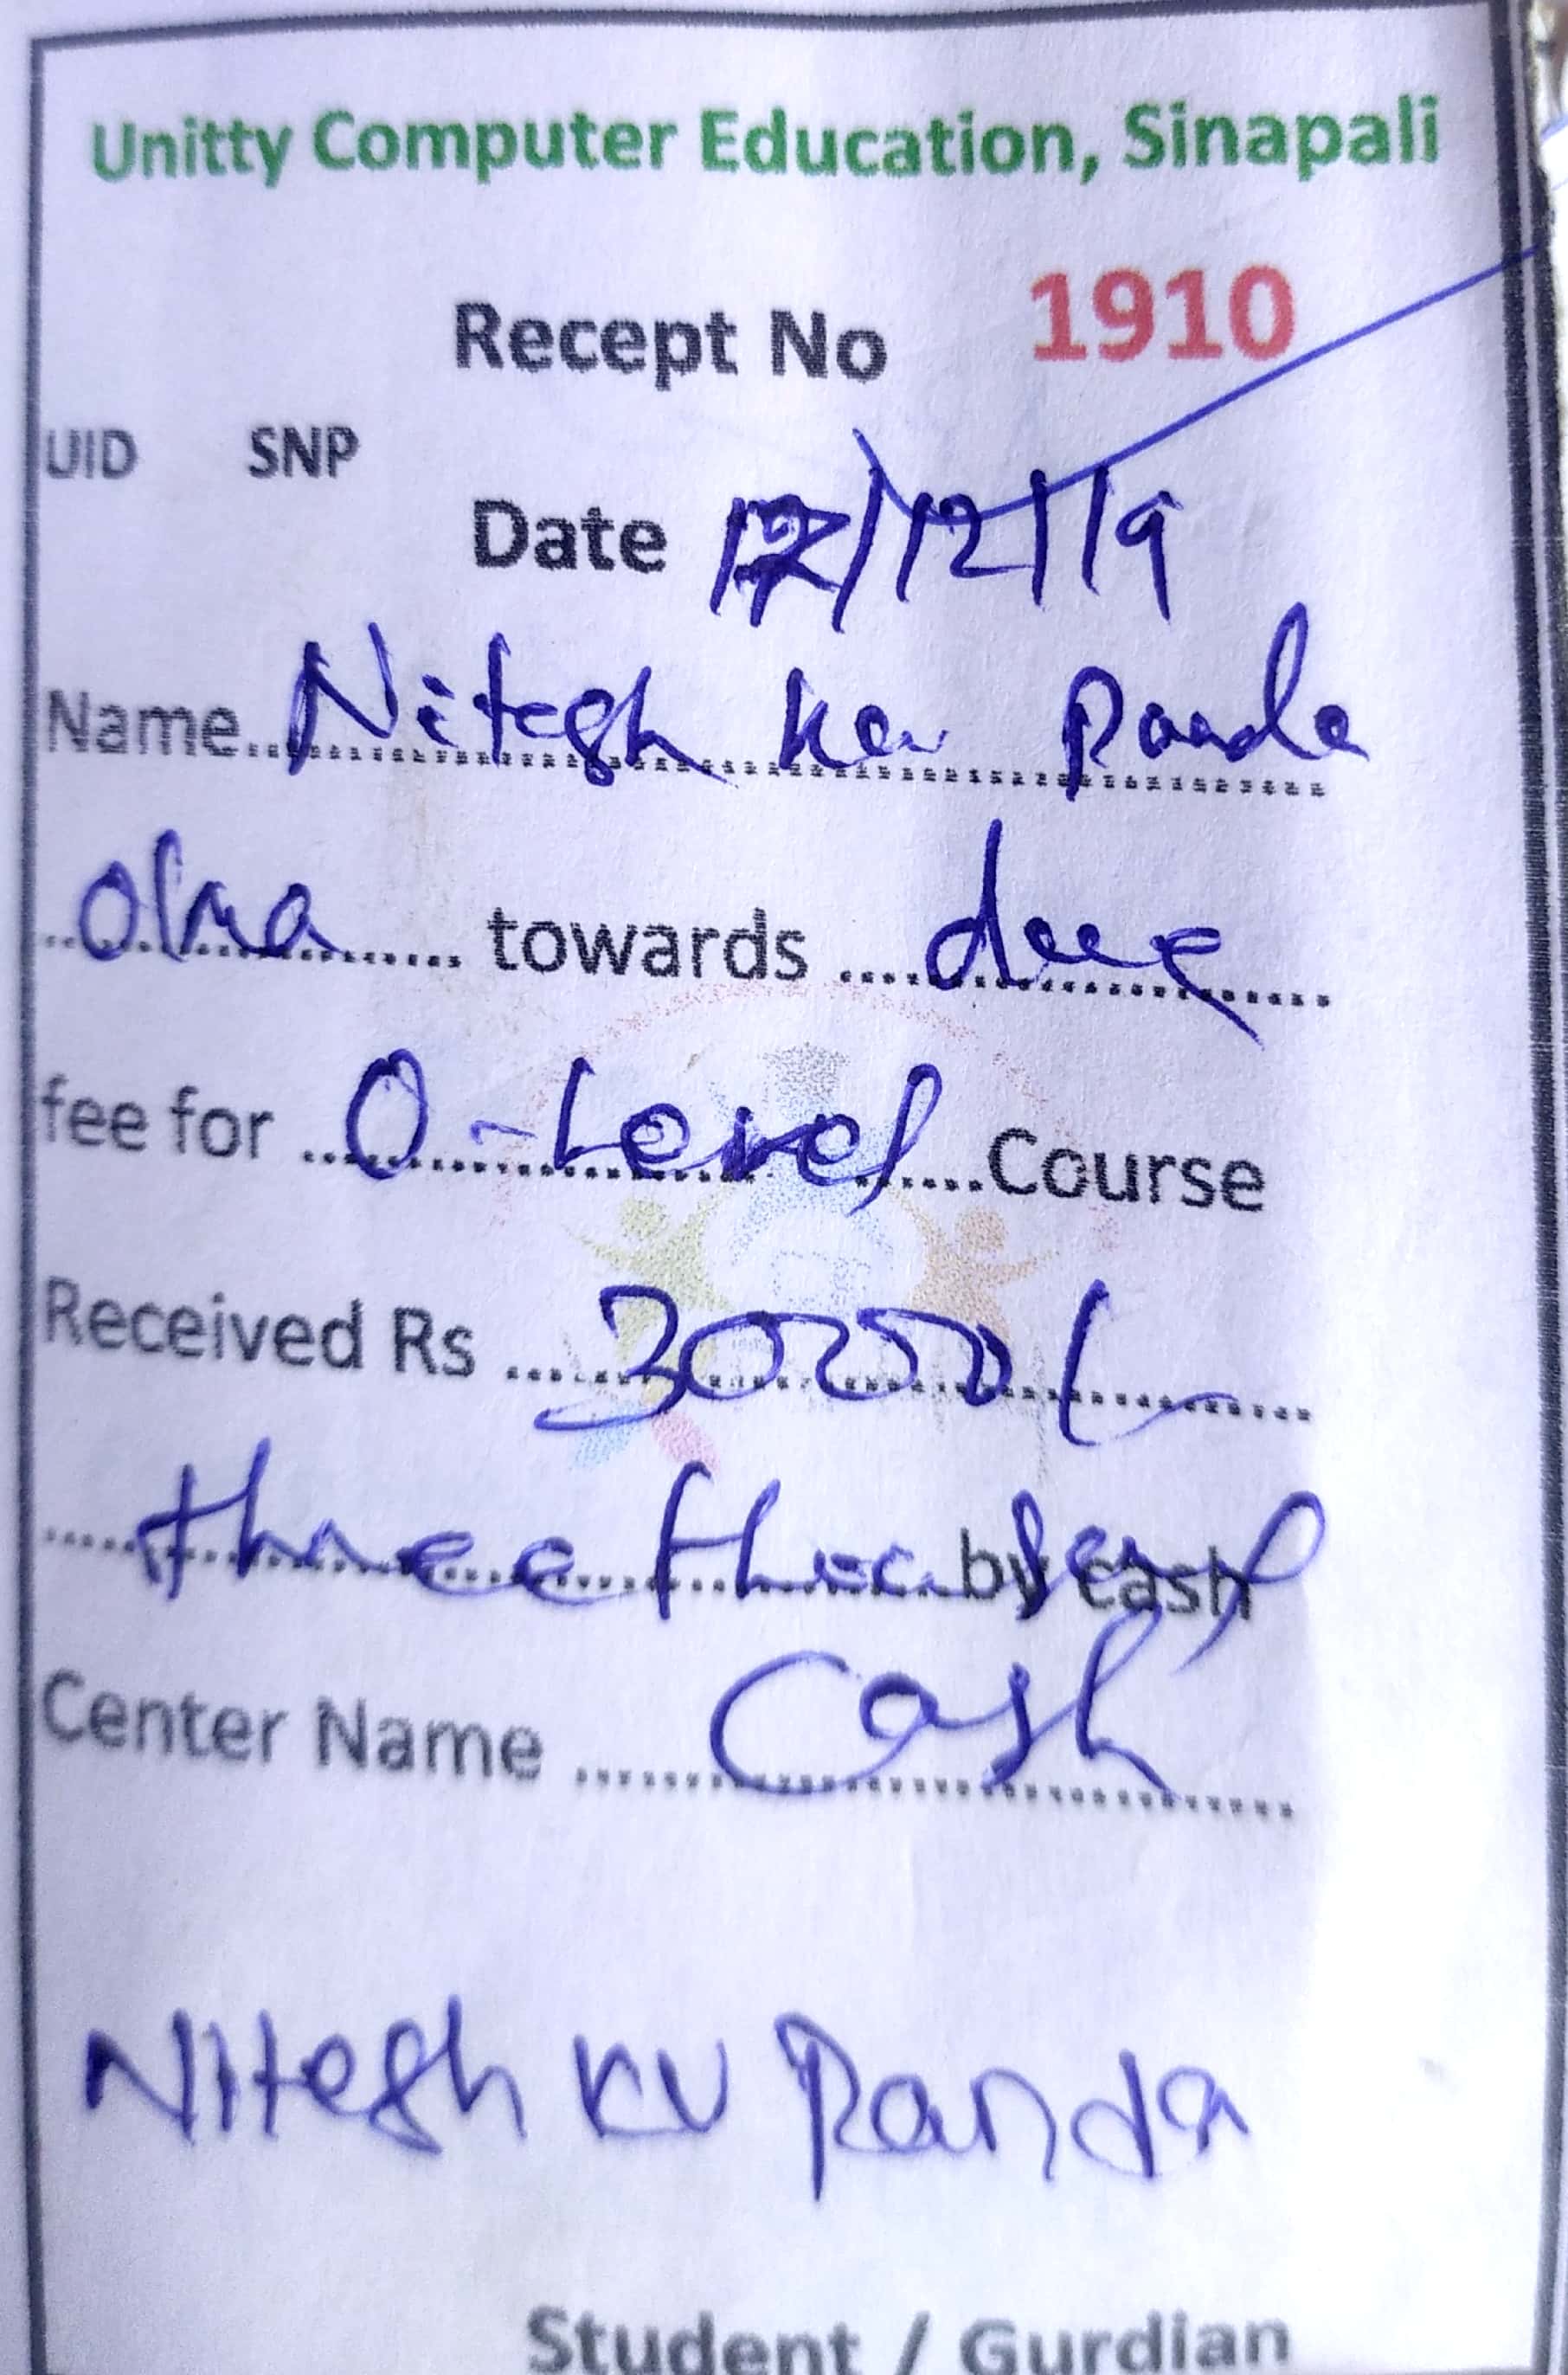 Unitty Computer Education, Sinapali
Recept No 1910
UID SNP
Date 17/12/19
Name Nitesh Ku Panda
towards due
fee for O-Level Course
Received Rs 3000/-
three thousand by cash
Center Name Cash
Nitesh KU Panda
Student / Gurdian